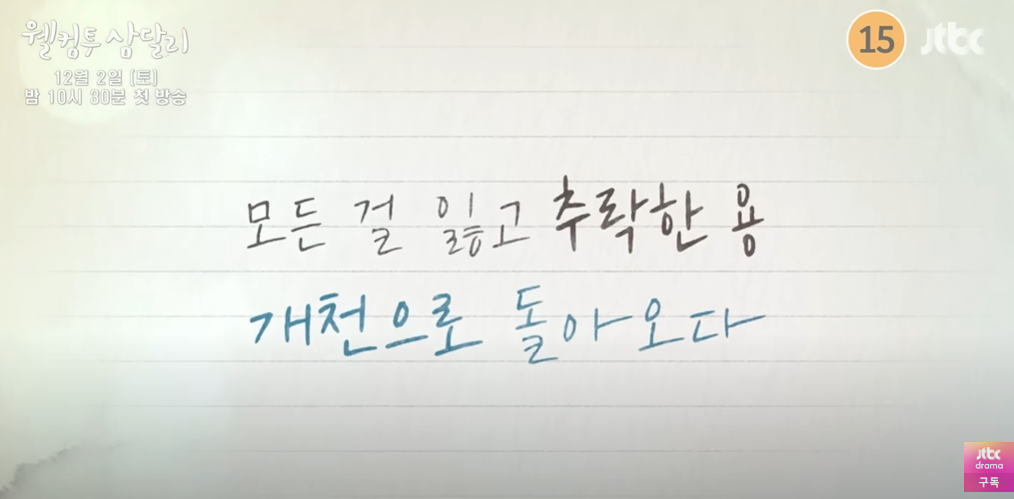 웰컴투 삼달리
12월 2일 (토)
밤 10시 30분 첫 방송
15
jtbc
모든 걸 잃고 추락한 용
개천으로 돌아오다
jtbc
drama
구독